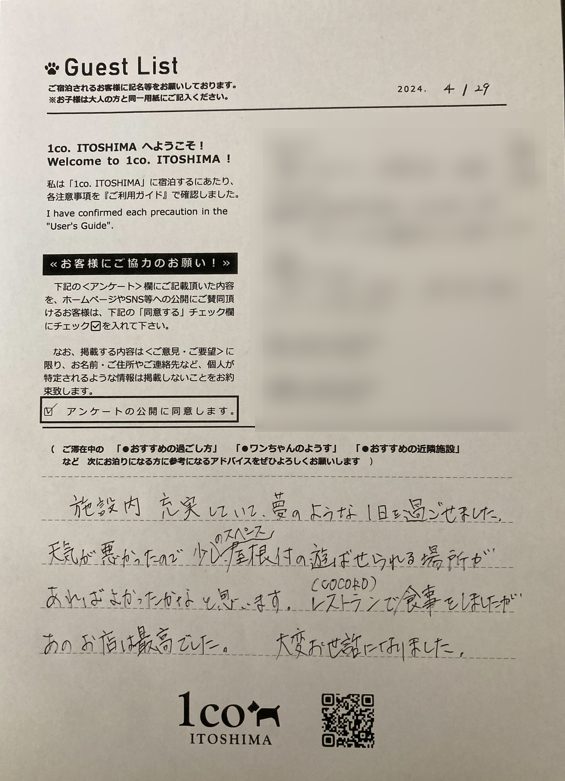 Guest List
ご宿泊されるお客様に記名等をお願いしております。
※お子様は大人の方と同一用紙にご記入ください。
2024. 4/29
1co. ITOSHIMA へようこそ！
Welcome to 1co. ITOSHIMA !
私は「1co. ITOSHIMA」に宿泊するにあたり、
各注意事項を『ご利用ガイド』で確認しました。
I have confirmed each precaution in the
"User's Guide".
≪お客様にご協力のお願い！≫
下記の＜アンケート＞欄にご記載頂いた内容
を、ホームページやSNS等への公開にご賛同頂
けるお客様は、下記の「同意する」チェック欄
にチェック☑を入れて下さい。
なお、掲載する内容は＜ご意見・ご要望＞に
限り、お名前・ご住所やご連絡先など、個人が
特定されるような情報は掲載しないことをお約
束致します。
☑ アンケートの公開に同意します。
（ ご滞在中の 「●おすすめの過ごし方」 「●ワンちゃんのようす」 「●おすすめの近隣施設」
など 次にお泊りになる方に参考になるアドバイスをぜひよろしくお願いします ）
施設内 充実していて、夢のような1日を過ごせました。
のスペース
天気が悪かったので 少し屋根付の遊ばせられる場所が
あればよかったかなと思います。レストランで食事をしましたが
(COCORO)
あのお店は最高でした。 大変お世話になりました。
1co
ITOSHIMA